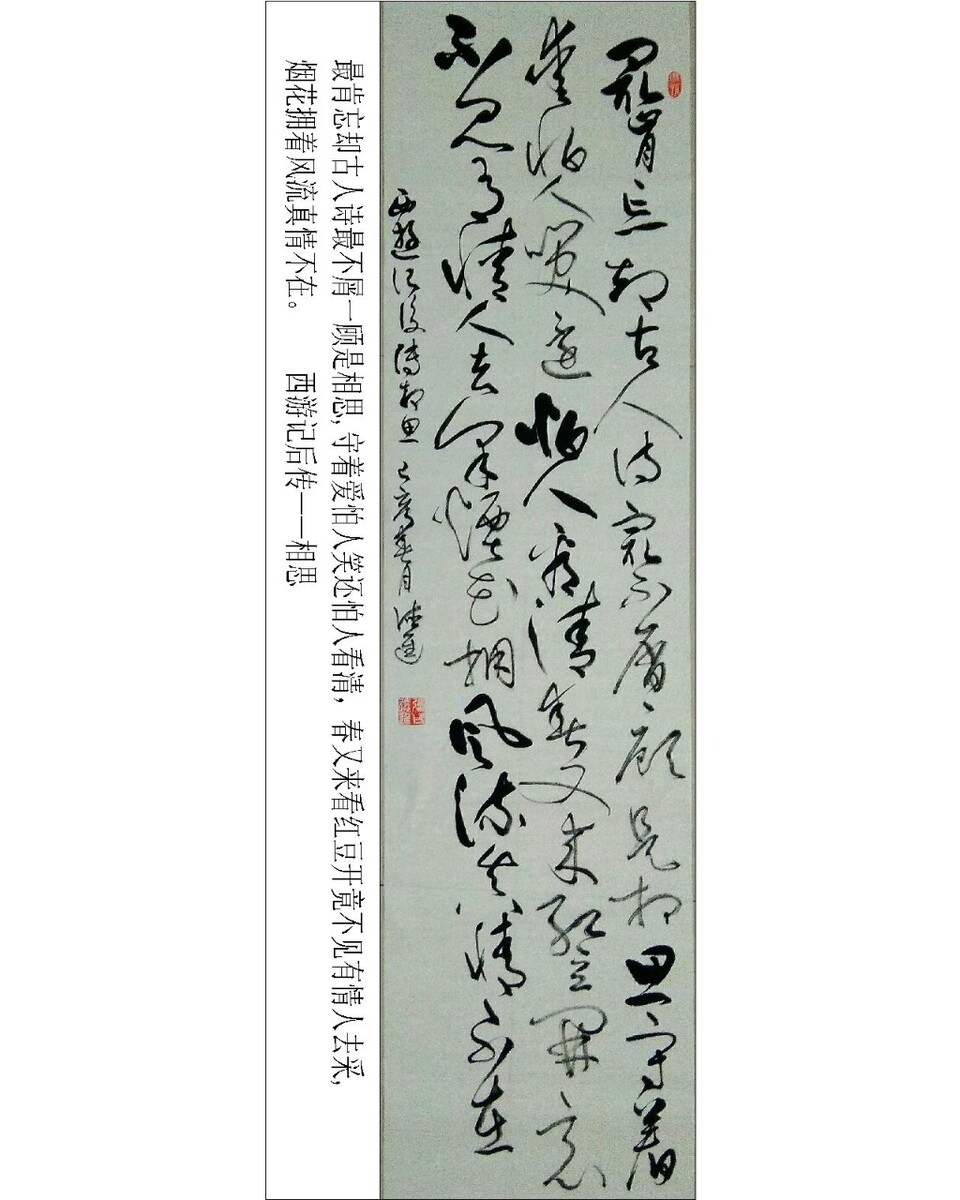 最肯忘却古人诗最不屑一顾是相思守着
爱怕人笑还怕人看清春又来红豆開竟
不见有情人去采煙花拥风流真情不在
西遊记後传相思 己亥春月
最肯忘却古人诗最不屑一顾是相思,守着爱怕人笑还怕人看清，春又来看红豆开竟不见有情人去采,
烟花拥着风流真情不在。 西游记后传——相思